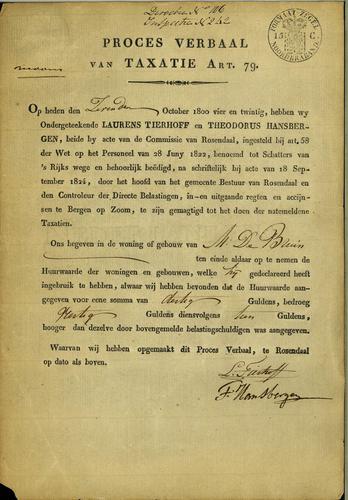 Directie No 106
Inspectie No 242
FORMAAT ZEGEL
15 C
NOORD BRABAND
PROCES VERBAAL
VAN TAXATIE ART. 79.
Op heden den October 1800 vier en twintig, hebben wy
Ondergeteekende LAURENS TIERHOFF en THEODORUS HANSBER-
GEN, beide by acte van de Commissie van Rosendaal, ingesteld bij art. 58
der Wet op het Personeel van 28 Juny 1822, benoemd tot Schatters van
's Rijks wege en behoorlijk beëdigd, na schriftelijk bij acte van 18 Sep-
tember 1824, door het hoofd van het gemeente Bestuur van Rosendaal en
den Controleur der Directe Belastingen, in-en uitgaande regten en accijn-
sen te Bergen op Zoom, te zijn gemagtigd tot het doen der natemeldene
Taxatien.
Ons begeven in de woning of gebouw van M. De Bruin
ten einde aldaar op te nemen de
Huurwaarde der woningen en gebouwen, welke hij gedeclareerd heeft
ingebruik te hebben, alwaar wij hebben bevonden dat de Huurwaarde aan-
gegeven voor eene somma van dertig Guldens, bedroeg
Veertig Guldens diensvolgens tien Guldens,
hooger dan dezelve door bovengemelde belastingschuldigen was aangegeven.
Waarvan wij hebben opgemaakt dit Proces Verbaal, te Rosendaal
op dato als boven.
L. Tierhoff
T. Hansbergen